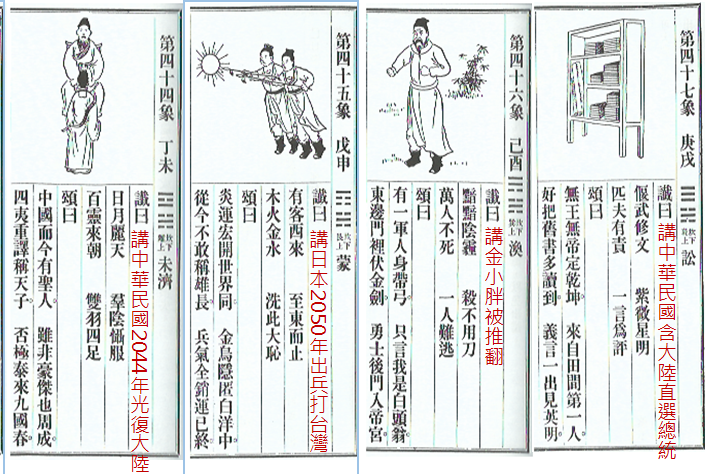 第四十四象 丁未 ䷿ 坎下離上 未濟
讖曰 講中華民國2044年光復大陸
日月麗天 羣陰懾服
百靈來朝 雙羽四足
頌曰
中國而今有聖人。 雖非豪傑也周成。
四夷重譯稱天子。 否極泰來九國春
第四十五象 戊申 ䷃ 坎下艮上 蒙
讖曰 講日本2050年出兵打台灣
有客西來 至東而止
木火金水 洗此大恥
頌曰
炎運宏開世界同。 金烏隱匿白洋中。
從今不敢稱雄長。 兵氣全銷運已終
第四十六象 己酉 ䷺ 坎下巽上 渙
讖曰 講金小胖被推翻
黯黯陰霾 殺不用刀
萬人不死 一人難逃
頌曰
有一軍人身帶弓。 只言我是白頭翁。
東邊門裡伏金劍。 勇士後門入帝宮。
第四十七象 庚戌 ䷅ 坎下乾上 訟
讖曰 講中華民國含大陸直選總統
偃武修文 紫微星明
匹夫有責 一言爲評
頌曰
無王無帝定乾坤。 來自田間第一人。
好把舊書多讀到。 義言一出見英明。